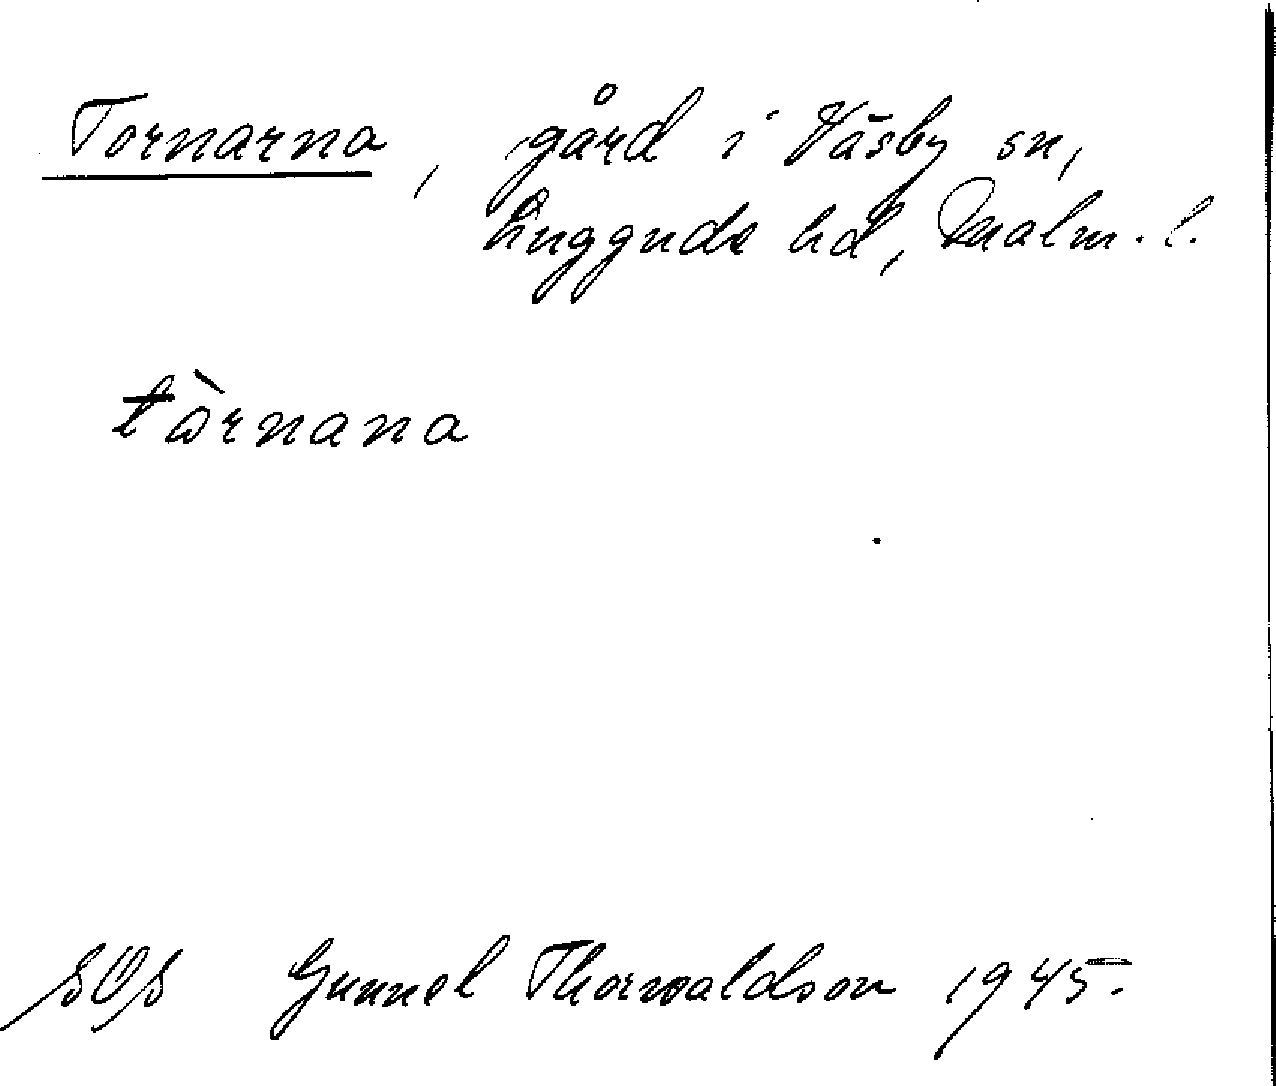 Tornarna, gård i Väsby sn,
Luggude hd, Malm. l.
tòrnana
SOS Gunnel Thorwaldson 1945.